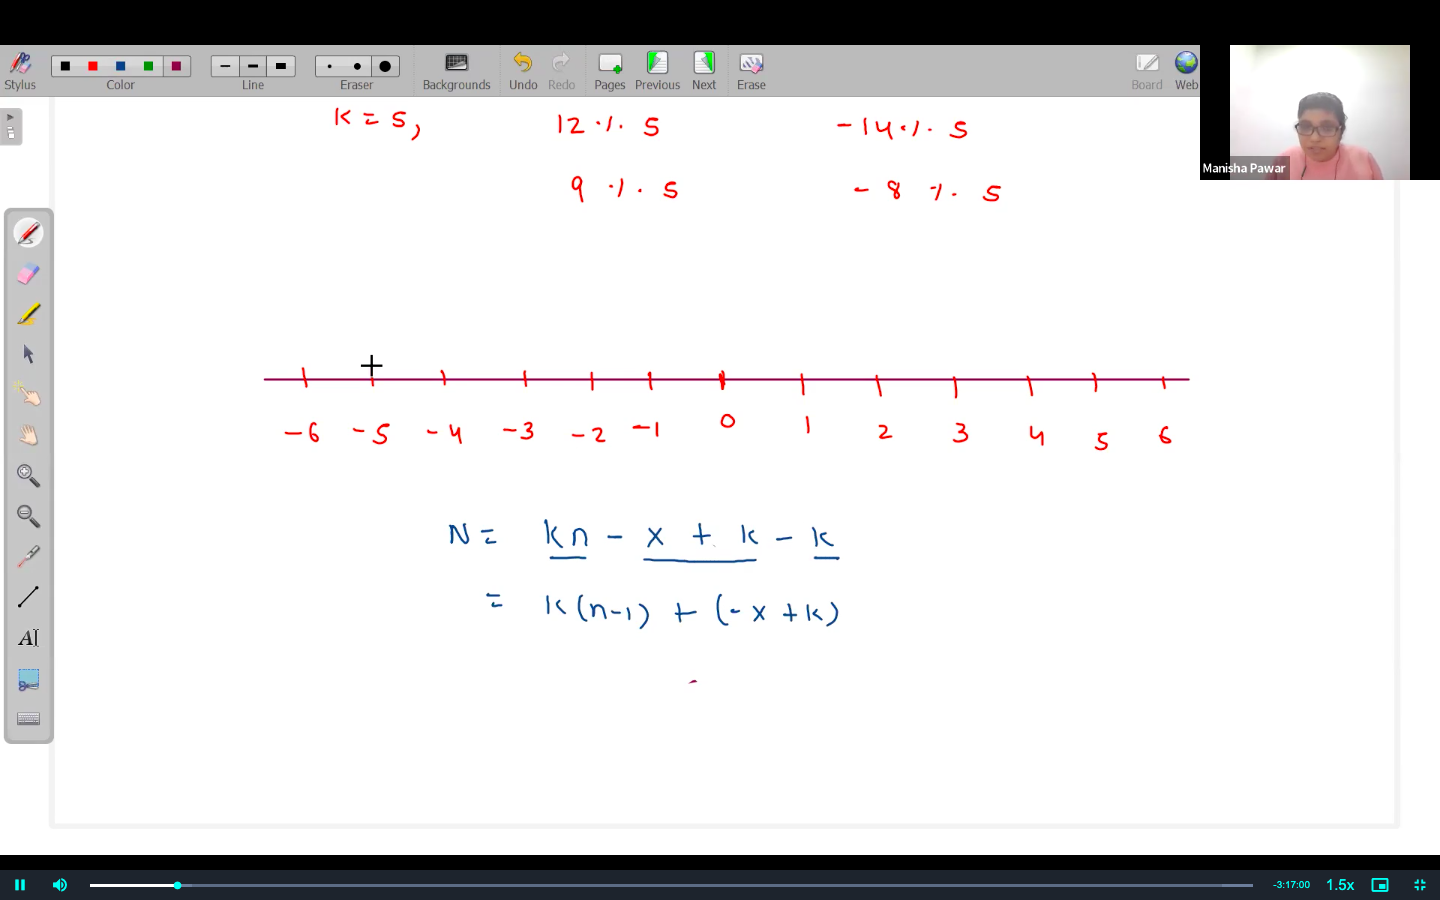 Stylus Color Line Eraser Backgrounds Undo Redo Pages Previous Next Erase Board Web
Manisha Pawar
k = 5, 12 % 5 -14 % 5
9 % 5 -8 % 5
-6 -5 -4 -3 -2 -1 0 1 2 3 4 5 6
N = kn - x + k - k
= k(n-1) + (-x + k)
A
-3:17:00 1.5x